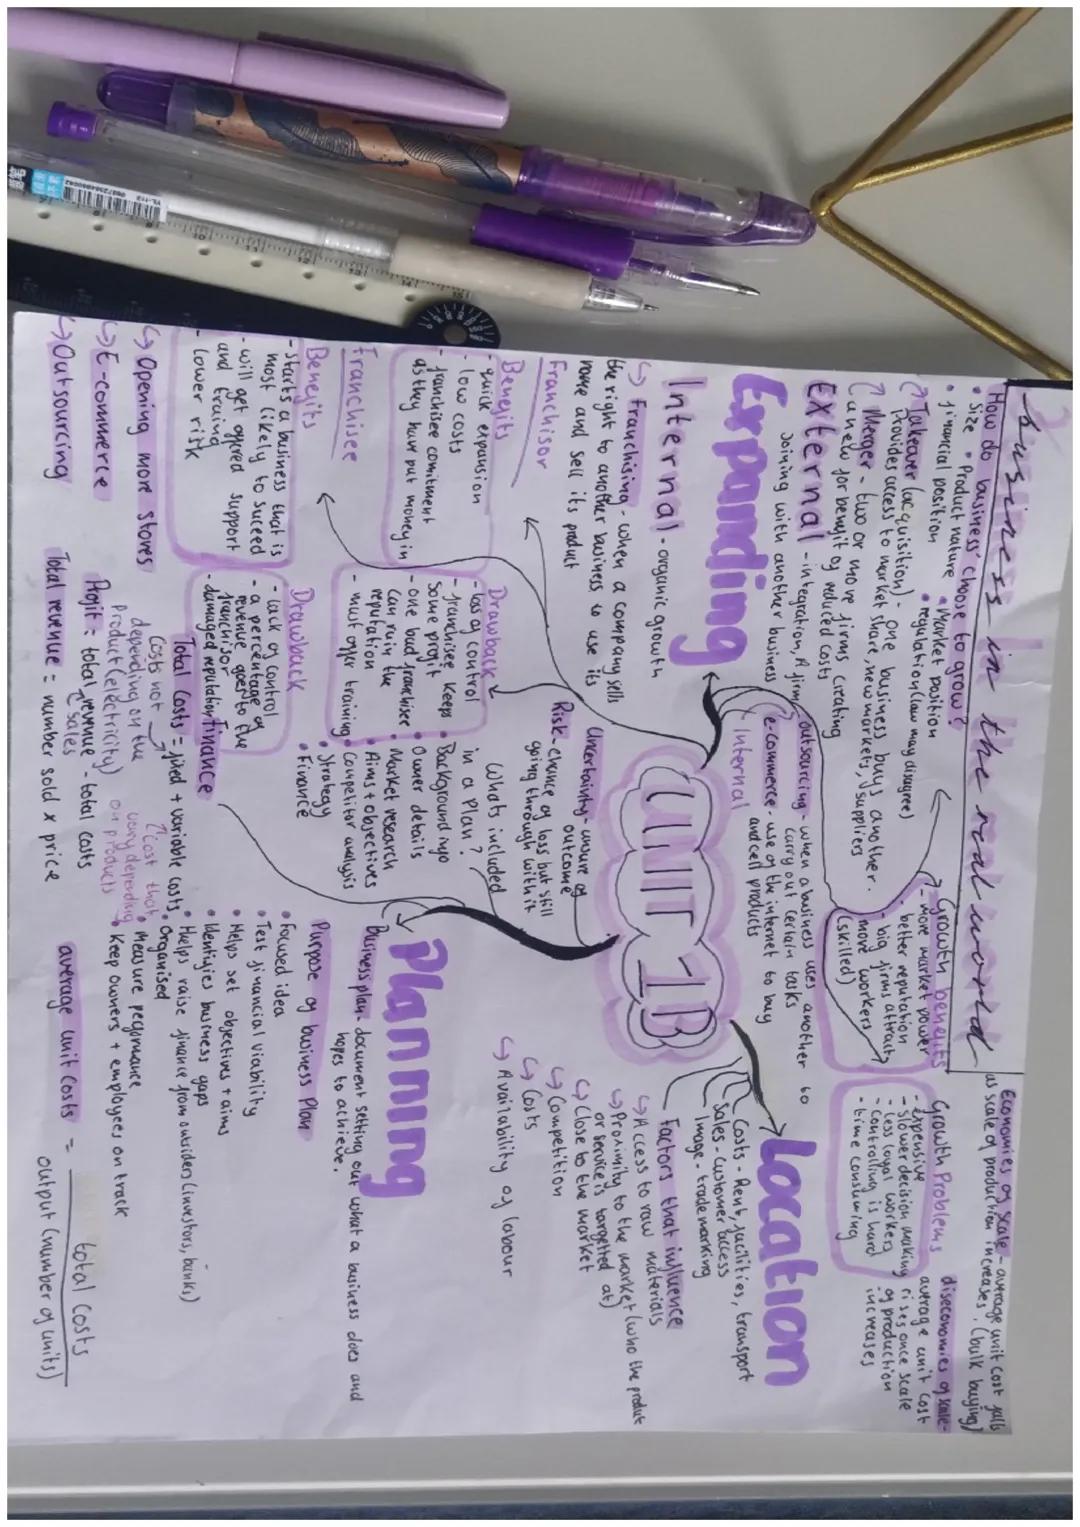 Business in the real world
How do business' choose to grow?
• Size • Product nature • Market position
• financial position • regulation (law may disagree)
Takeover (acquisition) - one business buys another.
Provides access to market share, new markets, suppliers
Merger - two or more firms creating
a new for benefit of reduced costs
External - integration, A firm
joining with another business
Expanding
Internal - organic growth
↳ Franchising - when a company sells
the right to another business to use its
name and sell its product
Franchisor
Benefits
- quick expansion
- low costs
- franchisee comitment
as they have put money in
Drawback
- loss of control
- franchisee keeps
some profit
- one bad franchisee
can ruin the
reputation
- must offer training
Franchisee
Benefits
- starts a business that is
most likely to suceed
- will get offered support
and training
- lower risk
Drawback
- lack of control
- a percentage of
revenue goes to the
franchisor
- damaged reputation
↳ Opening more stores
↳ E-commerce
↳ Outsourcing
Growth benefits
- more market power
- better reputation
- big firms attract
more workers
(skilled)
Growth Problems
- Expensive
- slower decision making
- less loyal workers
- controlling is hard
- time consuming
Economies of scale - average unit cost falls
as scale of production increases. (bulk buying)
diseconomies of scale -
average unit cost
rises once scale
of production
increases
outsourcing - when a business uses another to
carry out certain tasks
e-commerce - use of the internet to buy
and cell products
Internal
UNIT 1B
Location
Costs - Rent, facilities, transport
Sales - customer access
Image - trademarking
Factors that influence
↳ Access to raw materials
↳ Proximity to the market (who the produte
or service is targetted at)
↳ Close to the market
↳ Competition
↳ Costs
↳ Availability of labour
Uncertainty - unsure of
outcome
Risk - chance of loss but still
going through with it
Whats included
in a plan?
• Background info
• Owner details
• Market research
• Aims + objectives
• Competitor analysis
• Strategy
• Finance
Planning
Business plan - document setting out what a business does and
hopes to achieve.
Purpose of business Plan
• Focused idea
• Test financial viability
• Helps set objectives + aims
• Identifies business gaps
• Helps raise finance from outsiders (investors, banks)
• Organised
• Measure performance
• Keep owners + employees on track
Finance
Total costs = fixed + variable costs
Costs not
depending on the
product (electricity)
cost that
vary depending
on products
Profit = total revenue - total costs
sales
Total revenue = number sold x price
average unit costs = total costs
output (number of units)